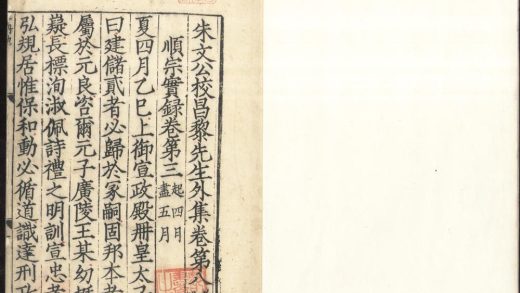 朱文公校昌黎先生外集卷第八
順宗實録卷第三 起四月盡五月
夏四月乙巳上御宣政殿冊皇太子
曰建儲貳者必歸於冢嗣固邦本者
屬於元良咨爾元子廣陵王某幼挺
嶷長標洵淑佩詩禮之明訓宣忠孝
弘規居惟保和動必循道識達刑政